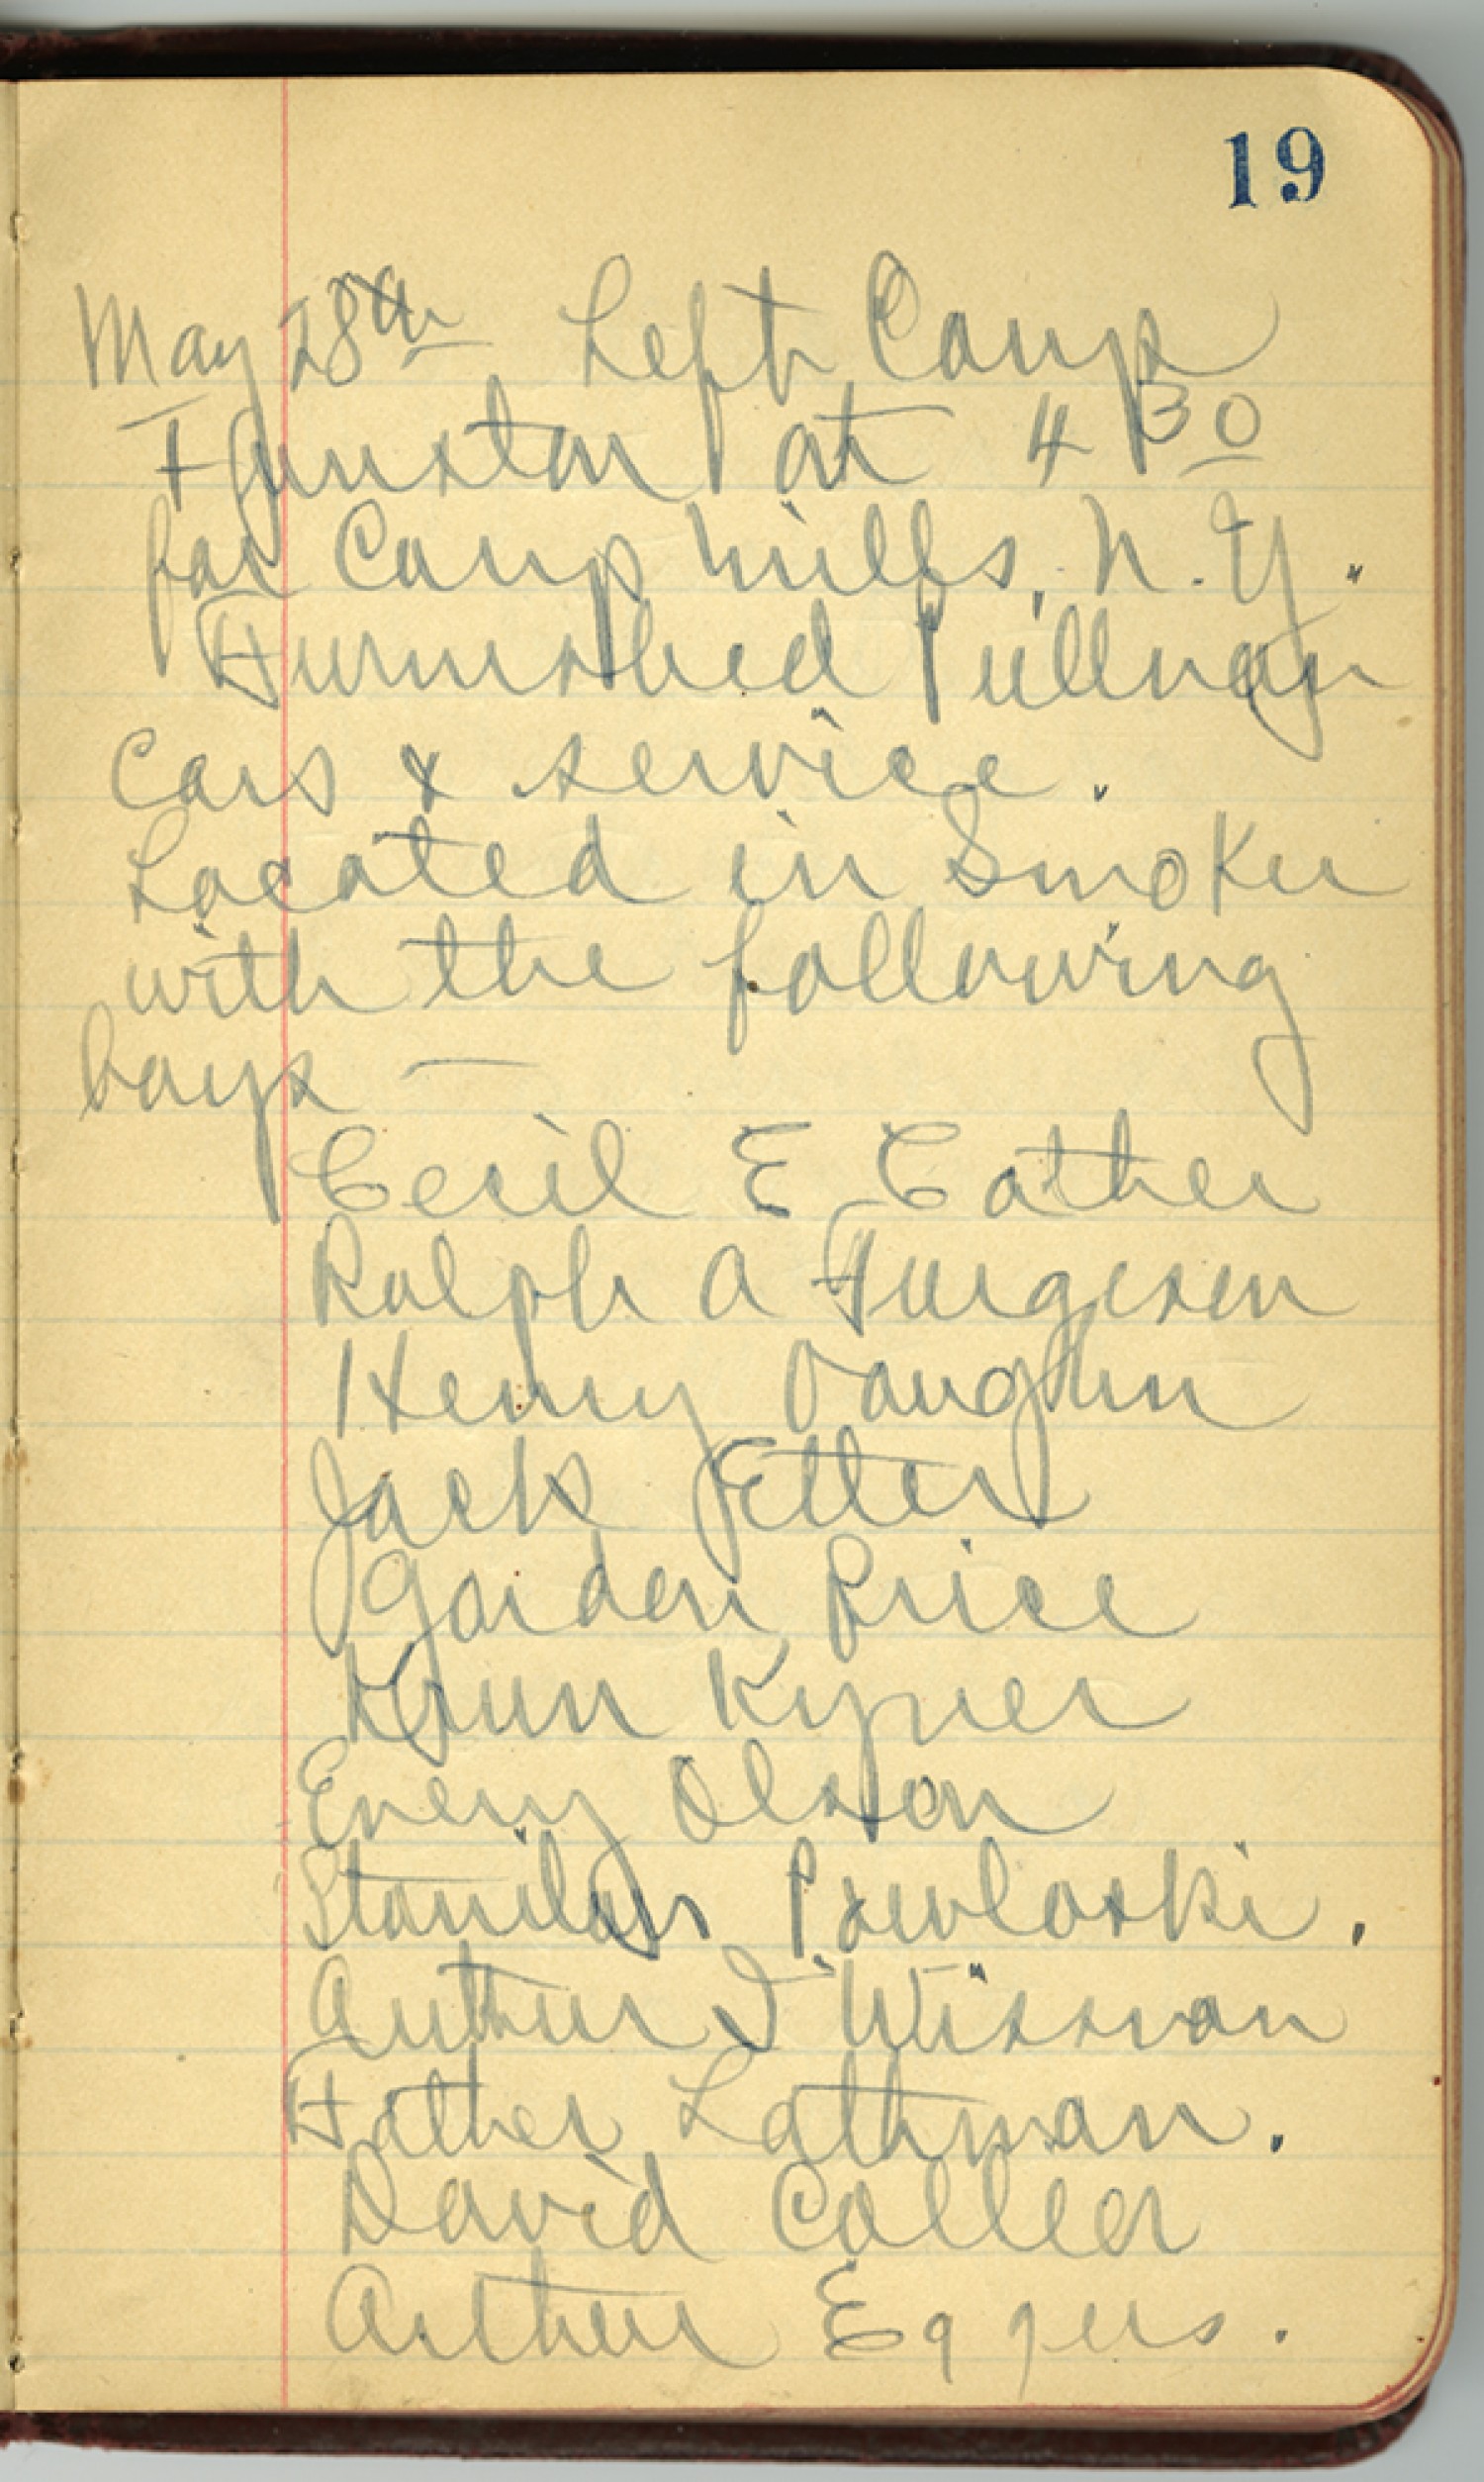 19
May 28th Left Camp
Funston at 4 30
for Camp Mills, N.Y.
Furnished Pullman
Cars & service.
Located in Smoker
with the following
boys —
Cecil E Cather
Ralph A Furgesen
Henry Vaughn
Jack Etter
Gorden Price
Kyner
Emery Olson
Pawloski.
Arthur I Wissman
Father Lathman.
David Coller
Arthur Eggers.